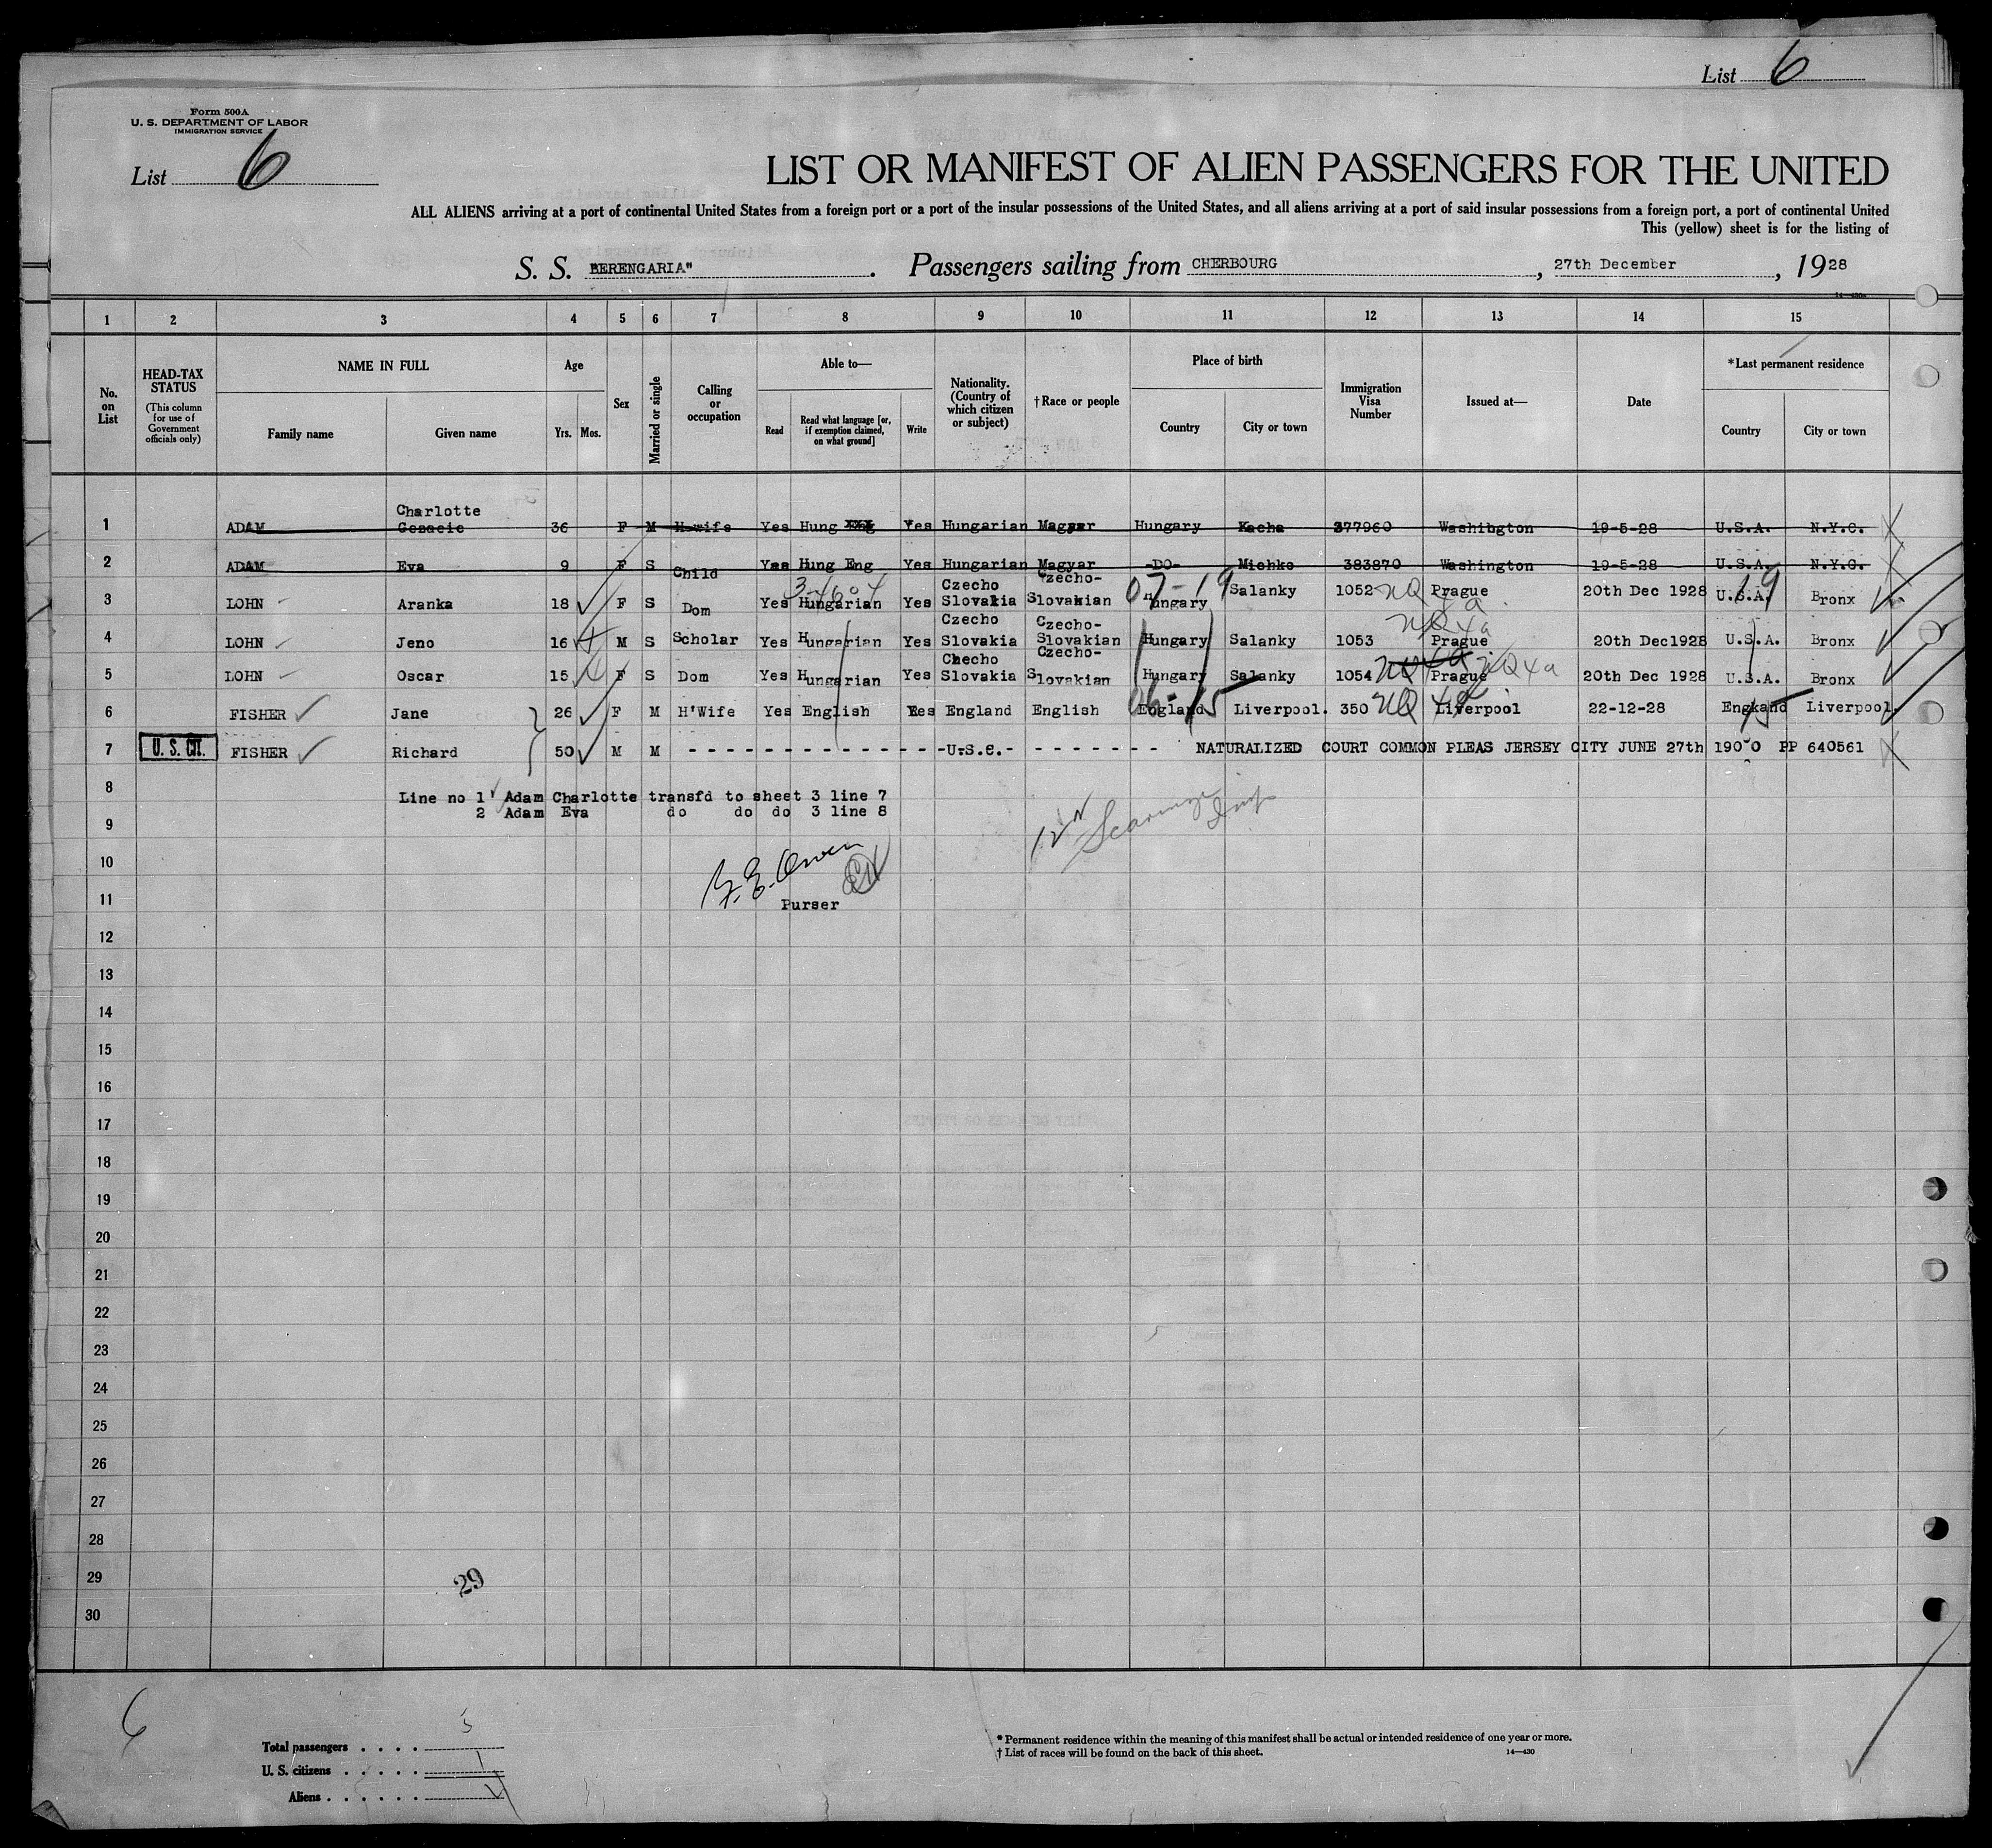 List 6
Form 500A
U. S. DEPARTMENT OF LABOR
IMMIGRATION SERVICE
List 6
LIST OR MANIFEST OF ALIEN PASSENGERS FOR THE UNITED
ALL ALIENS arriving at a port of continental United States from a foreign port or a port of the insular possessions of the United States, and all aliens arriving at a port of said insular possessions from a foreign port, a port of continental United
This (yellow) sheet is for the listing of
S. S. BERENGARIA" . Passengers sailing from CHERBOURG , 27th December , 1928
14—430a
1 2 3 4 5 6 7 8 9 10 11 12 13 14 15
No. on List
HEAD-TAX STATUS (This column for use of Government officials only)
NAME IN FULL
Family name Given name
Age
Yrs. Mos.
Sex
Married or single
Calling or occupation
Able to—
Read Read what language [or, if exemption claimed, on what ground] Write
Nationality. (Country of which citizen or subject)
†Race or people
Place of birth
Country City or town
Immigration Visa Number
Issued at—
Date
*Last permanent residence
Country City or town
Charlotte
1 ADAM 36 F M H-wife Yes Hung Yes Hungarian Magyar Hungary Kacha 377960 Washington 19-5-28 U.S.A. N.Y.C.
2 ADAM Eva 9 F S Child Yes Hung Eng Yes Hungarian Magyar -DO- Michko 383870 Washington 19-5-28 U.S.A. N.Y.C.
3 LOHN Aranka 18 F S Dom Yes Hungarian Yes Czecho Slovakia Czecho-Slovakian Hungary Salanky 1052 NQ Prague 20th Dec 1928 U.S.A. Bronx
07-19 19
4 LOHN Jeno 16 M S Scholar Yes Hungarian Yes Czecho Slovakia Czecho-Slovakian Hungary Salanky 1053 NQ 4a Prague 20th Dec1928 U.S.A. Bronx
5 LOHN Oscar 15 F S Dom Yes Hungarian Yes Czecho Slovakia Czecho-Slovakian Hungary Salanky 1054 NQ 4a Prague NQ 4a 20th Dec 1928 U.S.A. Bronx
06-15 15
6 FISHER Jane 26 F M H'Wife Yes English Yes England English England Liverpool. 350 NQ 4a Liverpool 22-12-28 England Liverpool.
7 U. S. CIT. FISHER Richard 50 M M - - - - - - - - - - - - - -U.S.C.- - - - - - - - NATURALIZED COURT COMMON PLEAS JERSEY CITY JUNE 27th 1900 PP 640561
8 Line no 1 Adam Charlotte transfd to sheet 3 line 7
9 2 Adam Eva do do do 3 line 8
10
Owen
11 Purser
12
13
14
15
16
17
18
19
20
21
22
23
24
25
26
27
28
29 29
30
6
Total passengers . . . . 5
U. S. citizens . . . . . 1
Aliens . . . . . .
* Permanent residence within the meaning of this manifest shall be actual or intended residence of one year or more.
† List of races will be found on the back of this sheet. 14—430